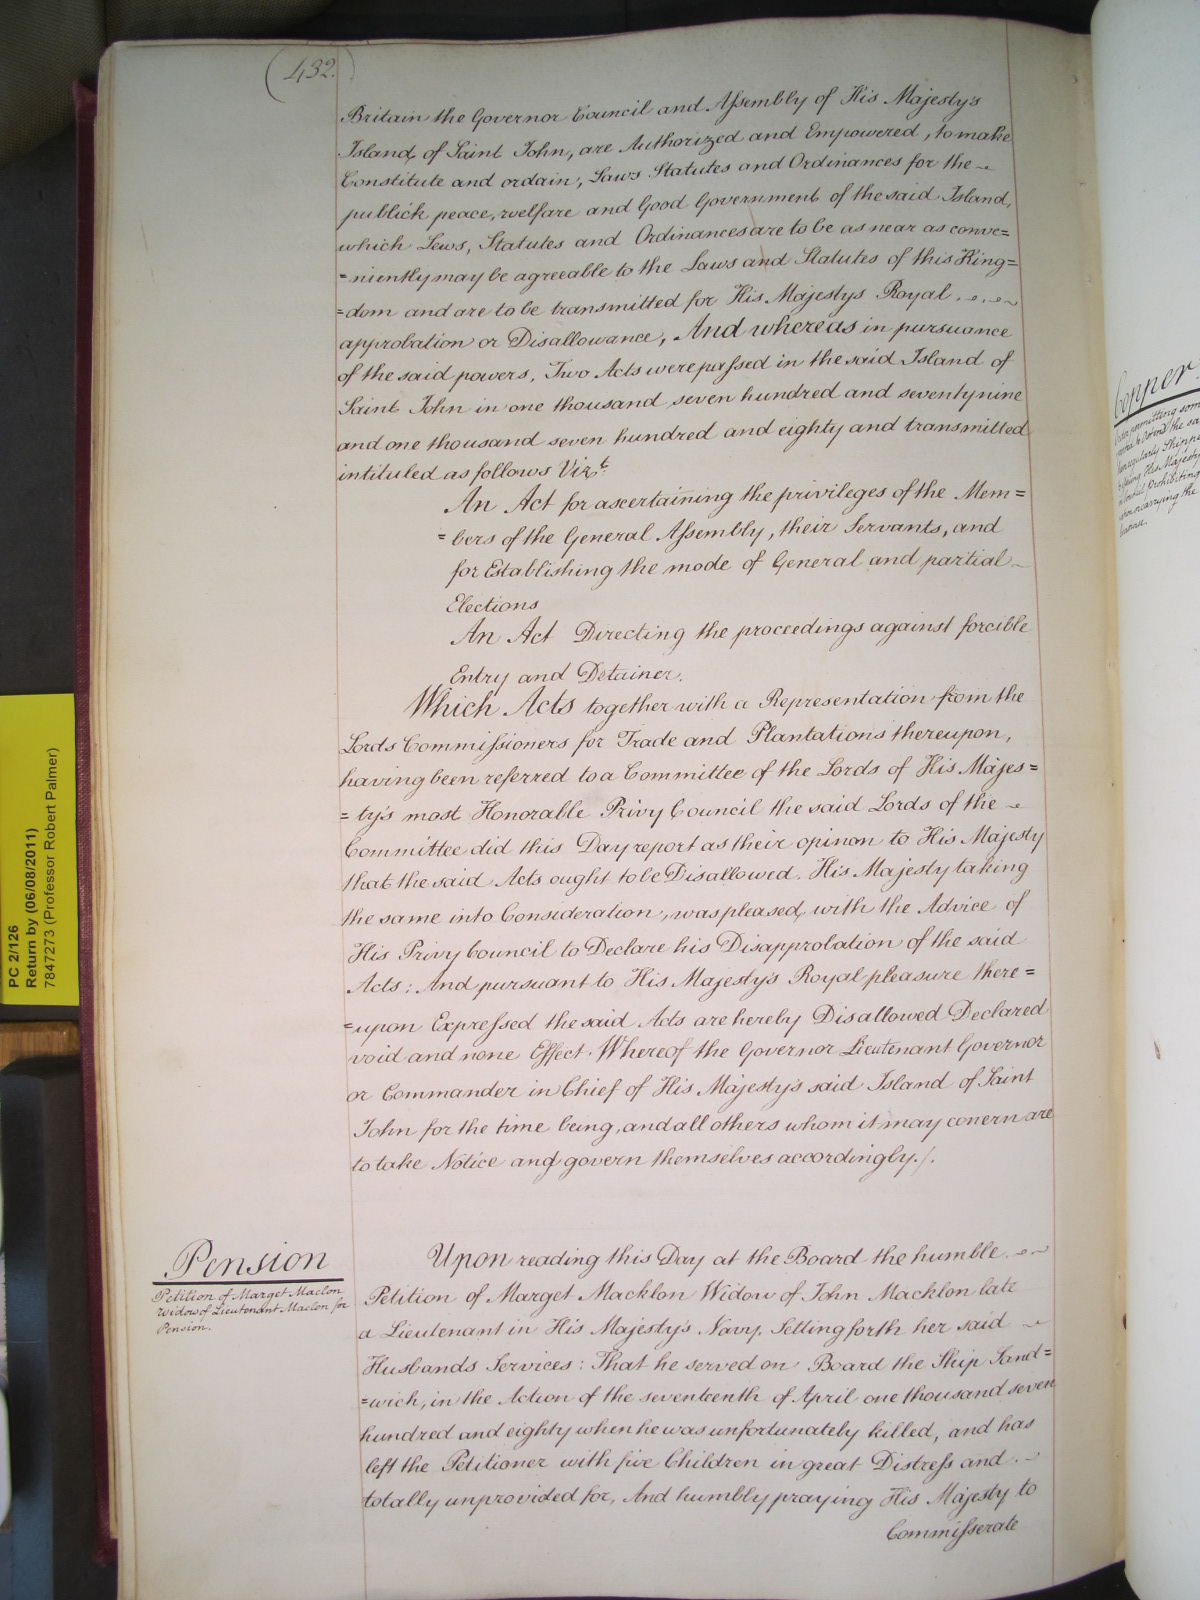 (432.)
Britain the Governor Council and Assembly of His Majesty's
Island, of Saint John, are Authorized and Empowered, to make
Constitute and ordain, Laws Statutes and Ordinances for the
publick peace, welfare and Good Government of the said Island,
which Lews, Statutes and Ordinances are to be as near as conve=
=niently may be agreeable to the Laws and Statutes of this King=
=dom and are to be transmitted for His Majestys Royal
approbation or Disallowance, And whereas in pursuance
of the said powers, Two Acts were passed in the said Island of
Saint John in one thousand seven hundred and seventynine
and one thousand seven hundred and eighty and transmitted
intituled as follows Vizt.
An Act for ascertaining the privileges of the Mem=
=bers of the General Assembly, their Servants, and
for Establishing the mode of General and partial
Elections
An Act Directing the proceedings against forcible
Entry and Detainer.
Which Acts together with a Representation from the
Lords Commissioners for Trade and Plantations thereupon,
having been referred to a Committee of the Lords of His Majes=
=ty's most Honorable Privy Council the said Lords of the
Committee did this Day report as their opinon to His Majesty
that the said Acts ought to be Disallowed. His Majesty taking
the same into Consideration, was pleased, with the Advice of
His Privy Council to Declare his Disapprobation of the said
Acts: And pursuant to His Majesty's Royal pleasure there=
=upon Expressed the said Acts are hereby Disallowed Declared
void and none Effect. Whereof the Governor Lieutenant Governor
or Commander in Chief of His Majesty's said Island of Saint
John for the time being, and all others whom it may conern are
to take Notice and govern themselves accordingly./.
Pension
Petition of Marget Maclon
Widow of Lieutenant Maclon for
Pension.
Upon reading this Day at the Board the humble
Petition of Marget Macklon Widow of John Macklon late
a Lieutenant in His Majesty's Navy, Setting forth her said
Husbands Services: That he served on Board the Ship Sand=
=wich, in the Action of the seventeenth of April one thousand seven
hundred and eighty when he was unfortunately killed, and has
left the Petitioner with five Children in great Distress and
totally unprovided for, And humbly praying His Majesty to
Commisserate
PC 2/126
Return by (06/08/2011)
7847273 (Professor Robert Palmer)
Copper